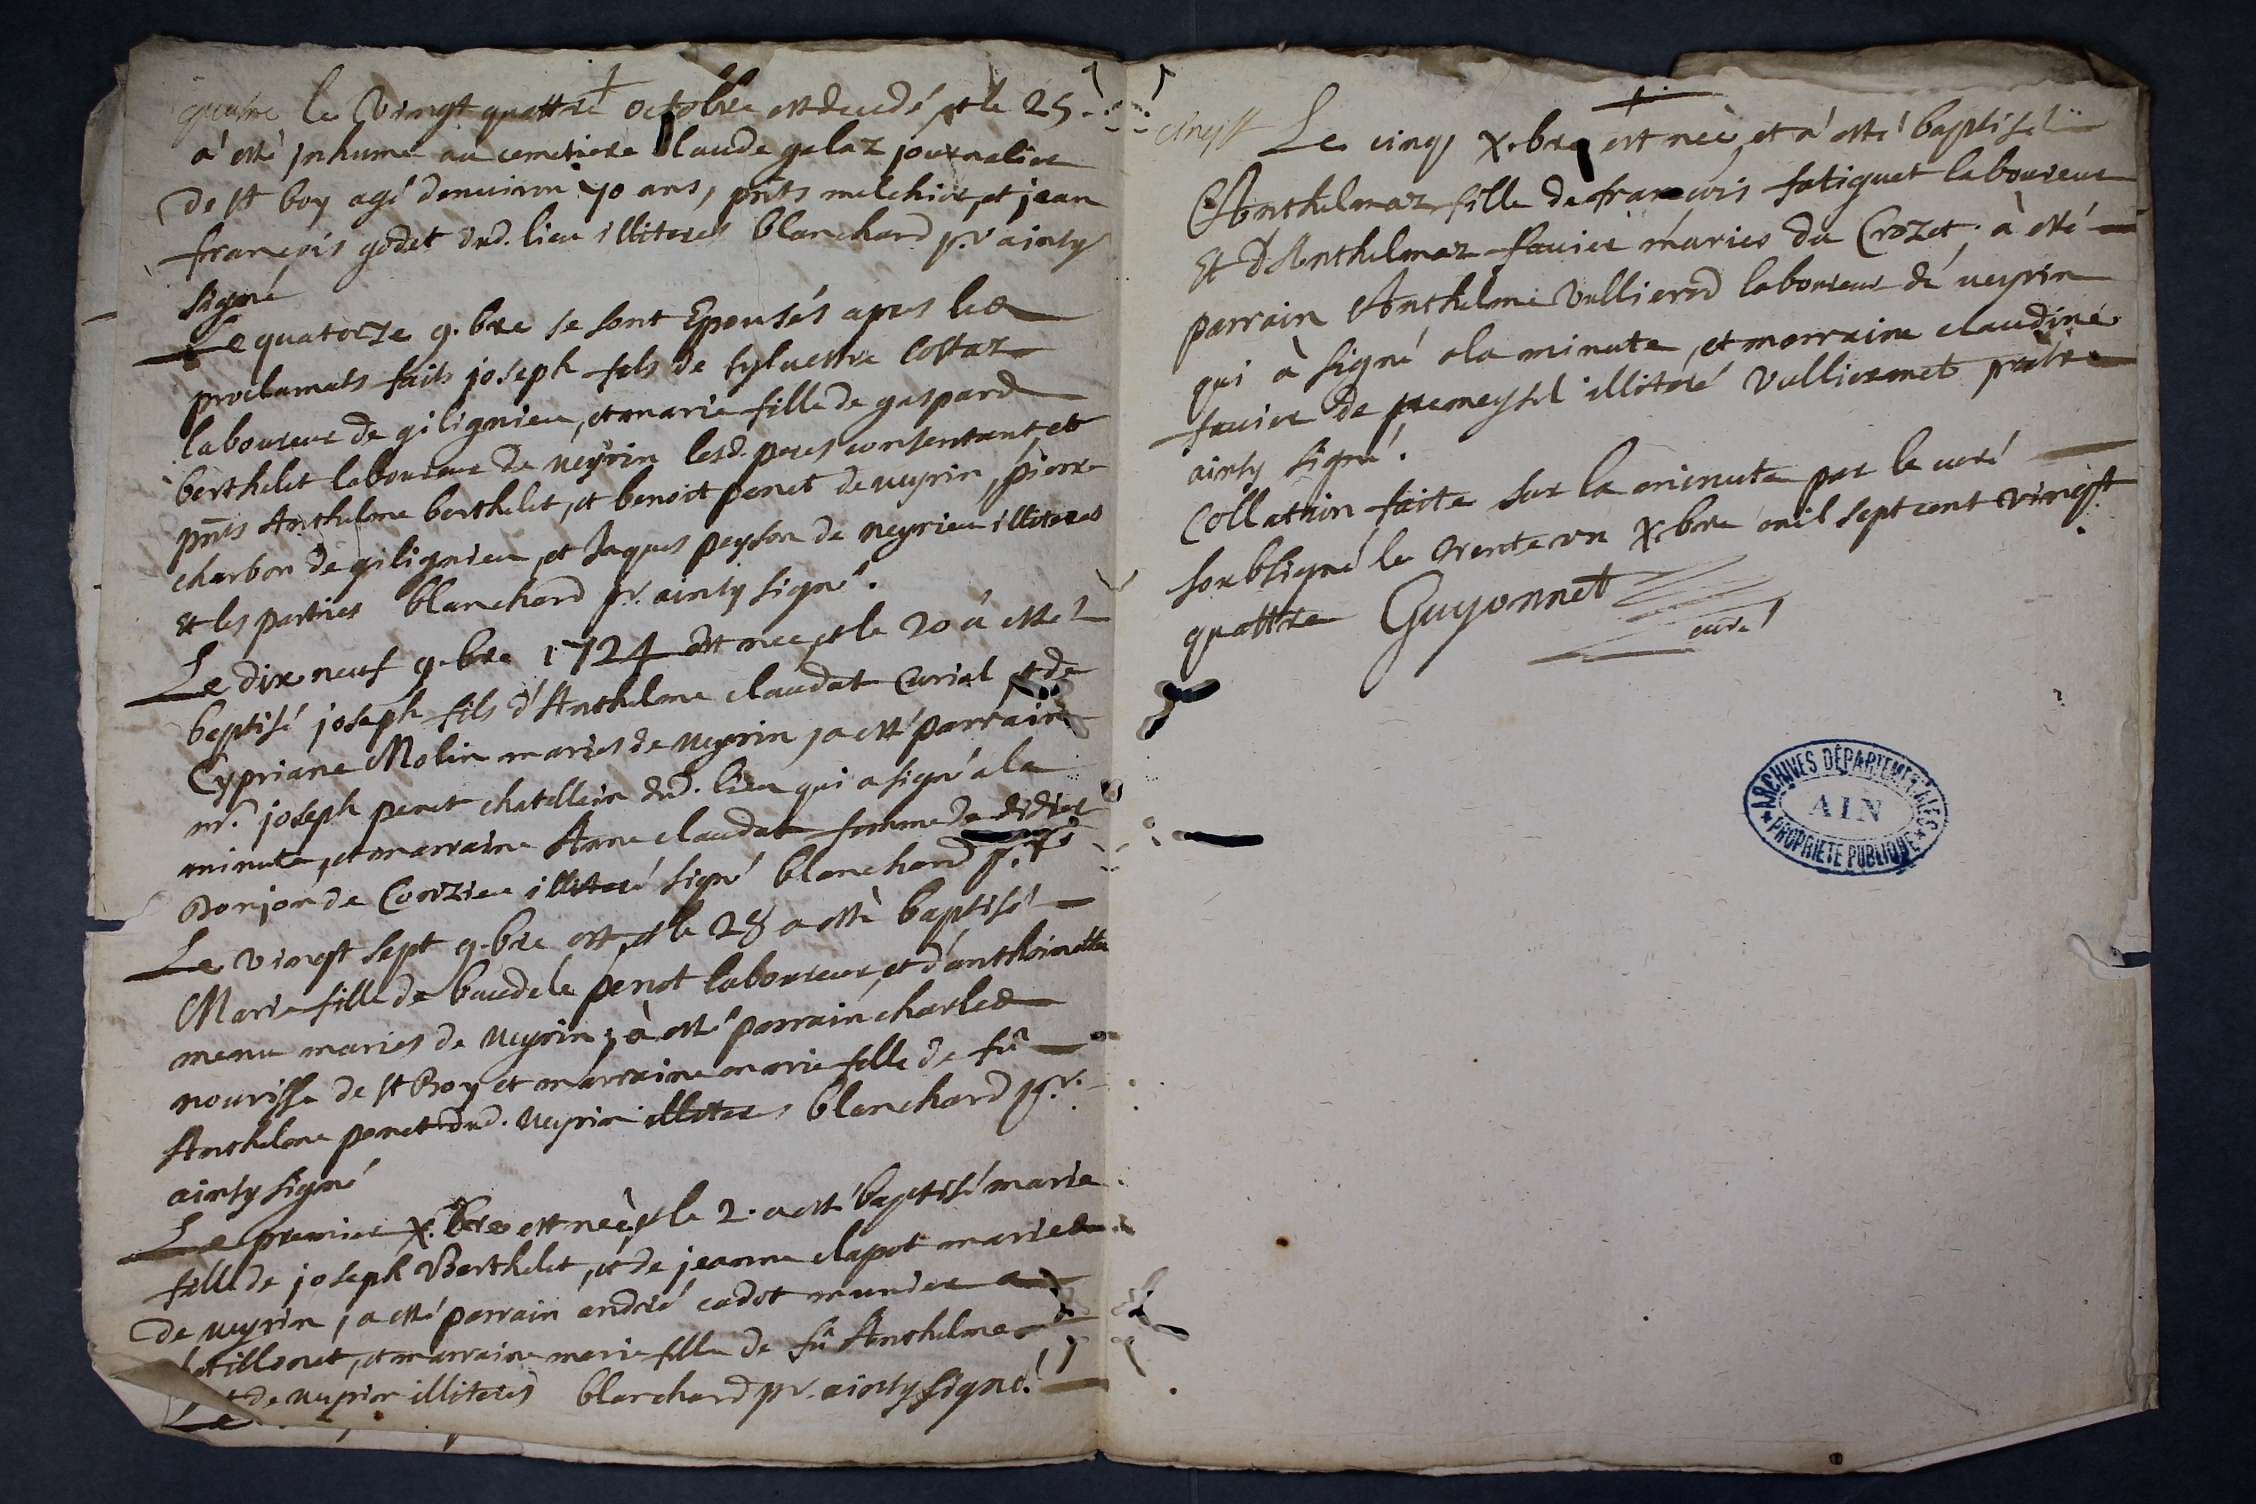 quatre le vingt quattre octobre est decedé et le 25
à esté inhumé au cemetiere Claude galaz journalier
de st boy agé denuiron 70 ans, pnts melchior, et jean
françois godet dud. lieu illiterés blanchard pr. ainsy
signé
Le quatorze 9.bre se sont Epousés apres les
proclamats faits joseph fils de syluestre Costaz
laboureur de gilignieu, et marie fille de gaspard
berthelet laboureur de neyrin lesd. peres consentent, et
pnts Anthelme berthelet, et benoit penet de ueyrin, pierre
charbon de gilignieu, et Jaques peyson de neyrieu illiteres
et les parties blanchard pr. ainsy signé.
Le dix neuf 9.bre 1724 est nee, et le 20 à esté
baptisé joseph fils d'Anthelme claudat Curial et de
Cypriane Molin maries de ueyrin, a esté parrain
mr. joseph penet chatellain dud. lieu qui a signé a la
minute, et marraine Anne claudat femme de didier
Bonjon de Conzieu illiteré signé blanchard pr.
Le vingt sept 9.bre est, et le 28 a esté baptisé
Marie fille de baudele penet laboureur, et d'anthoinette
menu maries de Ueyrin; à esté parrain charles
nourisse de st Boy et marraine marie fille de fû
Anthelme penet dud. Ueyrin illiteres blanchard pr.
ainsy signé
Le premier X.bre est neè, et le 2. a esté baptisé marie
fille de joseph Berthelet, et de jeanne clapot maries
de ueyrin, a esté parrain andré cadot munier a
et marraine marie fille de fû Anthelme
de ueyrin illiterés blanchard pr. ainsy signé.
Le
vingst Le cinq X.bre est neè, et a esté baptisé
Anthelmaz fille de francois fatiguet laboureur
Et d'Anthelmaz fauier mariés du Crozet; à esté
parrain Anthelme Vullierod laboureur de ueyrin
qui à signé a la minute, et marraine claudine
fauier de premeysel illiteré Vulliermet prêtre
ainsy signé.
Collation faite sur la minute par le curé
soubsigné le trente un X.bre mil sept cent vingt
quattre Guyonnet
curé
ARCHIVES DÉPARTEMENTALES
AIN
PROPRIÉTÉ PUBLIQUE